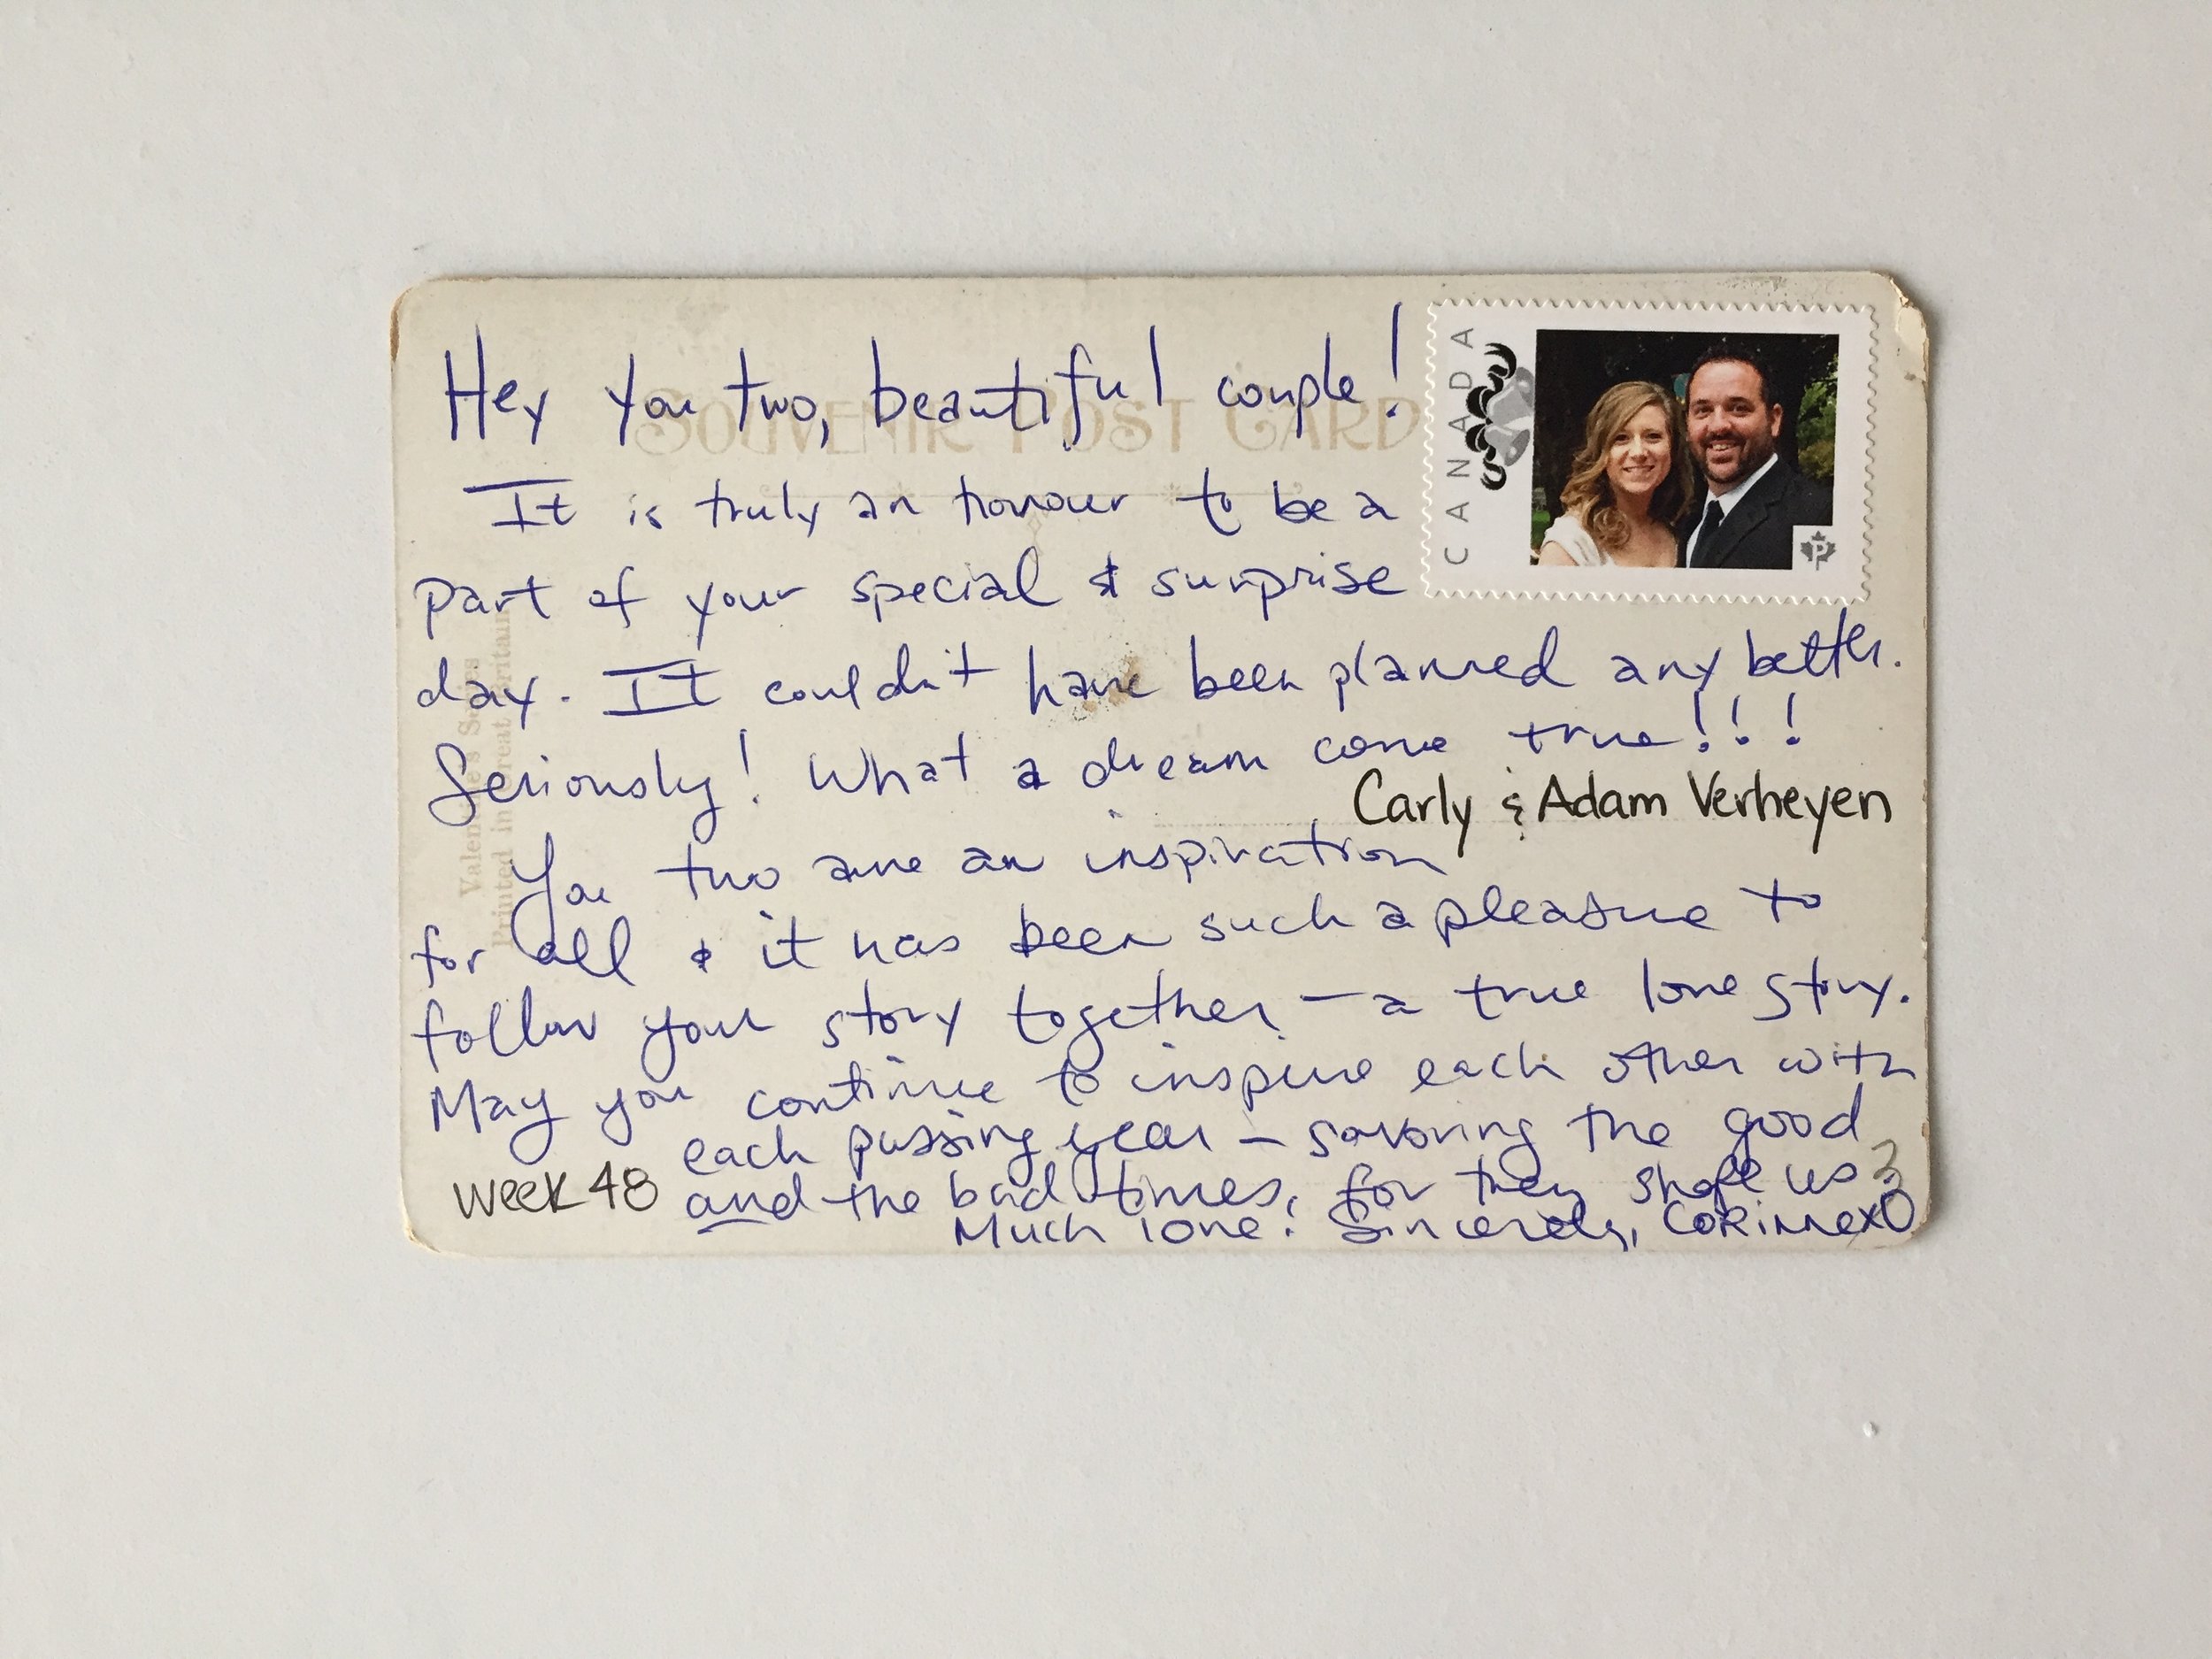 Hey you two, beautiful couple!
SOUVENIR POST CARD
CANADA
P
It is truly an honour to be a
part of your special & surprise
day. It couldn't have been planned any better.
Seriously! What a dream come true!!!
Carly & Adam Verheyen
You two are an inspiration
for all & it has been such a pleasure to
follow your story together - a true love story.
May you continue to inspire each other with
each passing year - savoring the good
and the bad times, for they shape us
Much love! Sincerely, CORinne xO
week 48
Valentine's Series
Printed in Great Britain